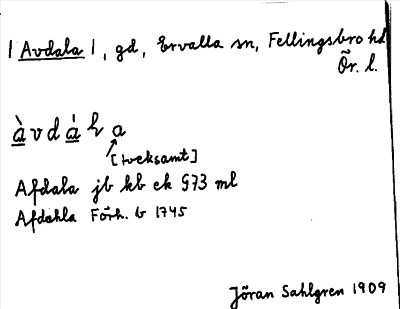 | Avdala |, gd, Ervalla sn, Fellingsbro hd
Ör. l.
àvdáɬa
[tveksamt]
Afdala jb kb ek §73 ml
Afdahla Förh. b 1745
Jöran Sahlgren 1909